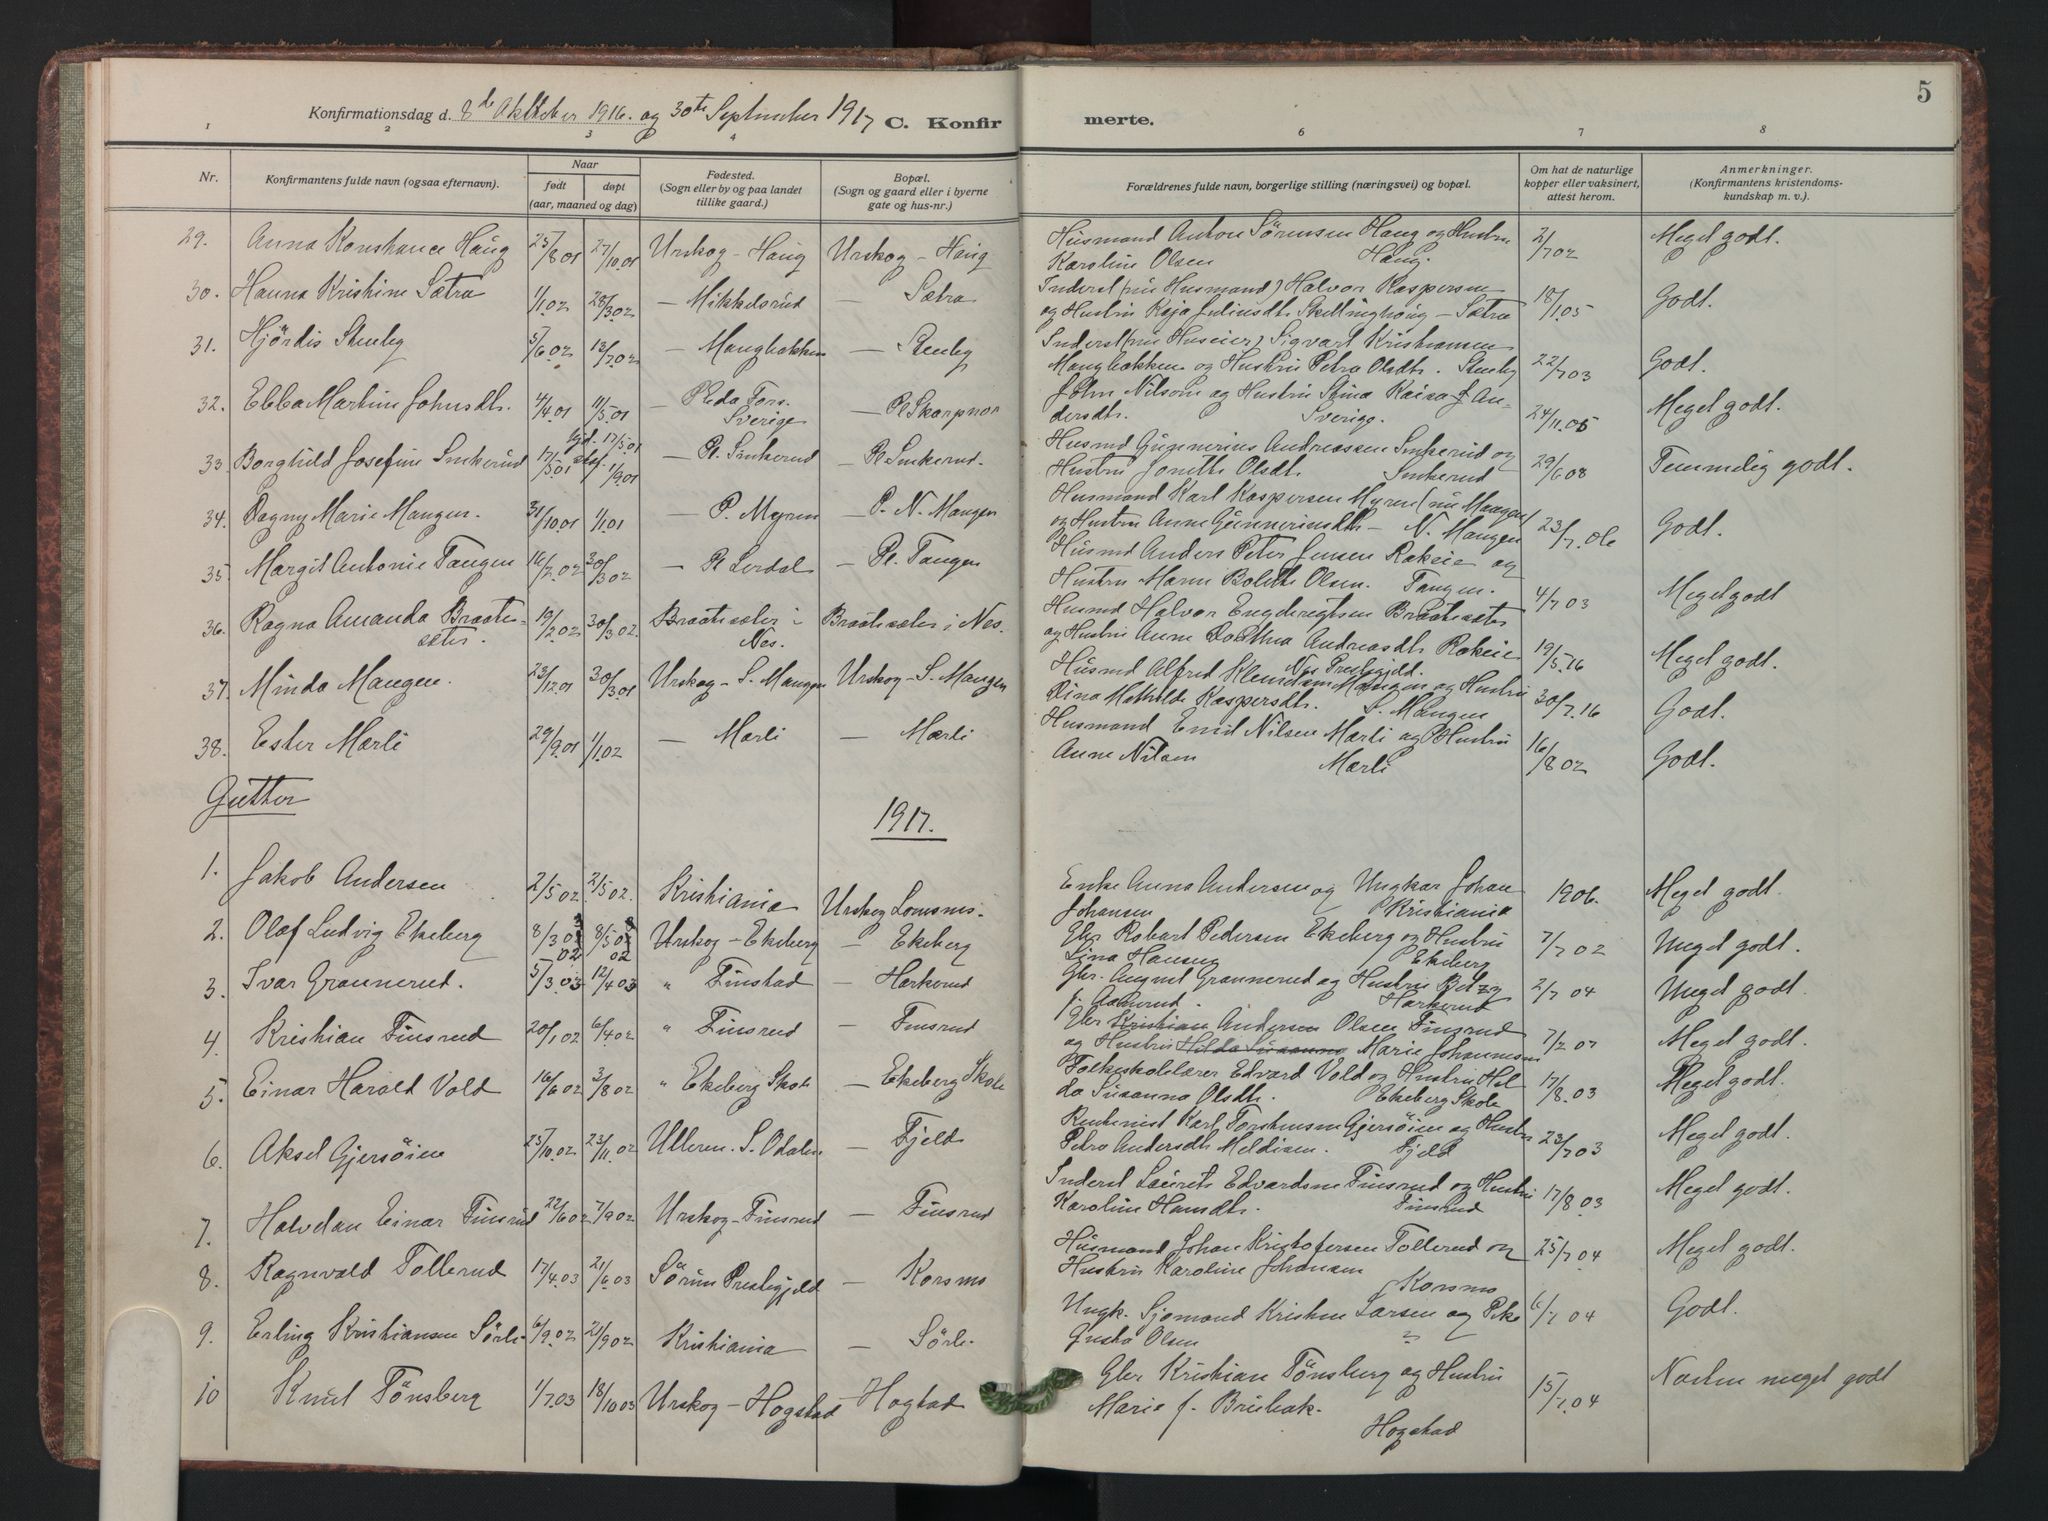 5
Konfirmationsdag d. 8de Oktober 1916. og 30te September 1917 C. Konfirmerte.
1 2 3 4 6 7 8
Nr. Konfirmantens fulde navn (ogsaa efternavn). Naar født døpt (aar, maaned og dag) Fødested. (Sogn eller by og paa landet tillike gaard.) Bopæl. (Sogn og gaard eller i byerne gate og hus-nr.) Forældrenes fulde navn, borgerlige stilling (næringsvei) og bopæl. Om hat de naturlige kopper eller vaksinert, attest herom. Anmerkninger. (Konfirmantens kristendoms-kundskap m. v.).
29. Anna Konstanse Haug 25/8 01 27/10.01 Urskog - Haug Urskog - Haug Husmand Anton Sørensen Haug og Hustru Karoline Olsen Haug. 2/7 02 Meget godt.
30. Hanna Kristine Sætra 1/1.02 28/3.02 — Mikkelsrud — Sætra Inderst (nu Husmand) Halvor Kaspersen og Hustru Kaja Juliusdtr. Skøttinghaug - Sætra 18/1.05 Godt.
31. Hjördis Stenby 5/6.02 13/7.02 — Mangbakken — Stenby Inderst (nu Huseier) Sigvart Kristiansen Mangbakken og Hustru Petra Olsdtr. Stenby 22/7 03 Godt.
32. Ebba Martine Johnsdtr. 4/4.01 11/5.01 — Pl Eda Fors. Sverige — Pl Skarpnor John Nilsson og Hustru Stina Kaisa f. Andersdtr. Sverige. 24/11.05 Meget godt.
33. Borghild Josefine Smkerud 17/5.01 hjd. 17/5.01 stadf. 1/9.01 — Pl. Smkerud — Pl Smkerud. Husmd Gunnerius Andreassen Smkerud og Hustru Jonette Olsdtr. Smkerud 29/6 08 Temmelig godt.
34. Dagny Marie Mangen. 31/10.01 1/1.01 — P. Myren — P. N. Mangen Husmand Karl Kaspersen Myren (nu Mangen) og Hustru Anne Gunneriusdtr - N. Mangen 23/7.06 Godt.
35. Margit Antonie Tangen 16/2.02 30/3 02 — Pl Lerdal — Pl. Tangen Husmd Anders Peter Jensen Rakeie og Hustru Maren Bolette Olsen. Tangen. 4/7 03 Meget godt
36. Ragna Amanda Braatesæter. 19/2.02 30/3 02. Braatesæter i Nes. Braatesæter i Nes. Husmd Halvor Engebregtsen Braatesæter og Hustru Anne Dorthea Andreasdtr. Rakeie Nes Præstegjeld. 19/5.16 Meget godt.
37. Minda Mangen. 23/12.01 30/3.01 Urskog - S. Mangen Urskog - S. Mangen Husmd Alfred Klemetsen Mangen og Hustru Dina Mathilde Kaspersdtr. S. Mangen 30/7.16 Godt.
38. Ester Mærli 29/9.01 1/1.02 — Mærli — Mærli Husmand Emil Nilsen Mærli og Hustru Anne Nilsen Mærli 16/8 02 Godt.
Gutter
1917.
1. Jakob Andersen 2/5 02 2/5 02. Kristiania Urskog Lomsnes. Enke Anna Andersen og Ungkar Johan Johansen Kristiania 1906. Meget godt.
2. Olaf Ludvig Ekeberg 8/3 03 02 8/5 03 02 Urskog - Ekeberg — Ekeberg Gbr Robert Pedersen Ekeberg og Hustru Lina Hansen Ekeberg 7/7 02 Meget godt.
3. Ivar Grønnerud. 5/3.03 12/4 03 " Finstad — Harkerud Gbr. August Grønnerud og Hustru Betzy f. Aamerud. Harkerud 2/7 04 Meget godt.
4. Kristian Finsrud 20/1 02 6/4 02 " Finsrud — Finsrud Gbr Kristian Andersen Olsen Finsrud og Hustru Hilda Susanna Marie Johannesen 7/2 07 Meget godt.
5. Einar Harald Vold 16/6 02 3/8 02 " Ekeberg Skole — Ekeberg Skole Folkeskolelærer Edvard Vold og Hustru Hilda Susanna Olsdtr. Ekeberg Skole 17/8.03 Meget godt.
6. Aksel Gjersöien 25/10.02 23/11.02 Ulleren. S. Odalen — Fjeld Rentenist Karl Torstensen Gjersöien og Hustru Petra Andersdtr. Meldiseen. Fjeld 23/7 03 Meget godt.
7. Halvdan Einar Finsrud 22/6 02 7/9 02 Urskog - Finsrud — Finsrud Inderst Laurits Edvardsen Finsrud og Hustru Karoline Hansdtr. Finsrud 17/8 03 Meget godt.
8. Ragnvald Tollerud 17/4.03 21/6 03 Sörum Præstegjeld — Korsmo Husmand Johan Kristofersen Tollerud og Hustru Karoline Johansen Korsmo 25/7.04 Meget godt.
9. Erling Kristiansen Sörli 6/9.02 21/9 02 Kristiania — Sörli. Ungk. Sjømand Kristen Larsen og Pike Gusta Olsen 6/7 04 Godt.
10 Knut Tönsberg 1/7.03 18/10 03 Urskog - Hogstad - Hogstad Gbr Kristian Tönsberg og Hustru Marie f. Brubak. Hogstad 15/7.04 Næsten meget godt